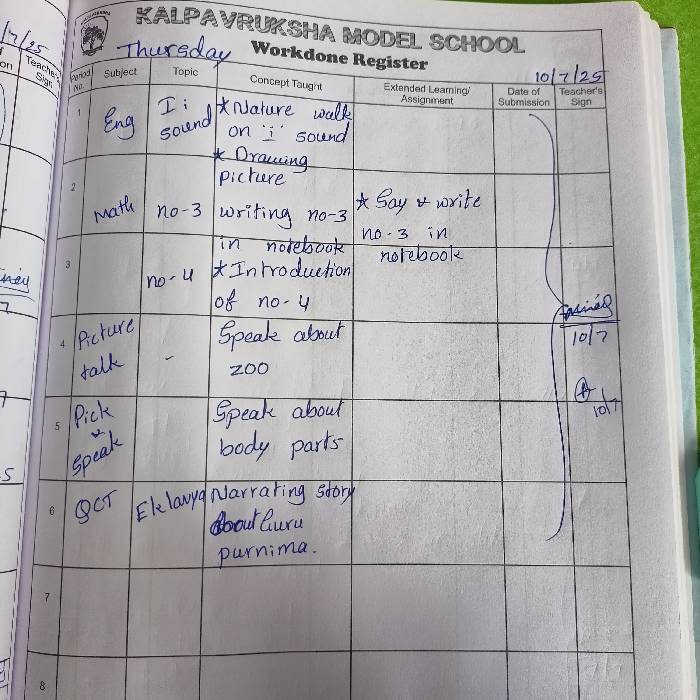 KALPAVRUKSHA MODEL SCHOOL
Thursday
Workdone Register
10/7/25
Period No.
Subject
Topic
Concept Taught
Extended Learning/
Assignment
Date of
Submission
Teacher's
Sign
1
Eng
I i
sound
* Nature walk
on 'i' sound
* Drawing
picture
2
Math
no-3
writing no-3
in notebook
* Say & write
no-3 in
notebook
3
no-4
* Introduction
of no-4
4
Picture
talk
-
Speak about
zoo
10/7
10/7
5
Pick
&
Speak
Speak about
body parts
6
QCT
Eklavya
Narrating story
about Guru
purnima.
7
8
/7/25
Teacher's
Sign